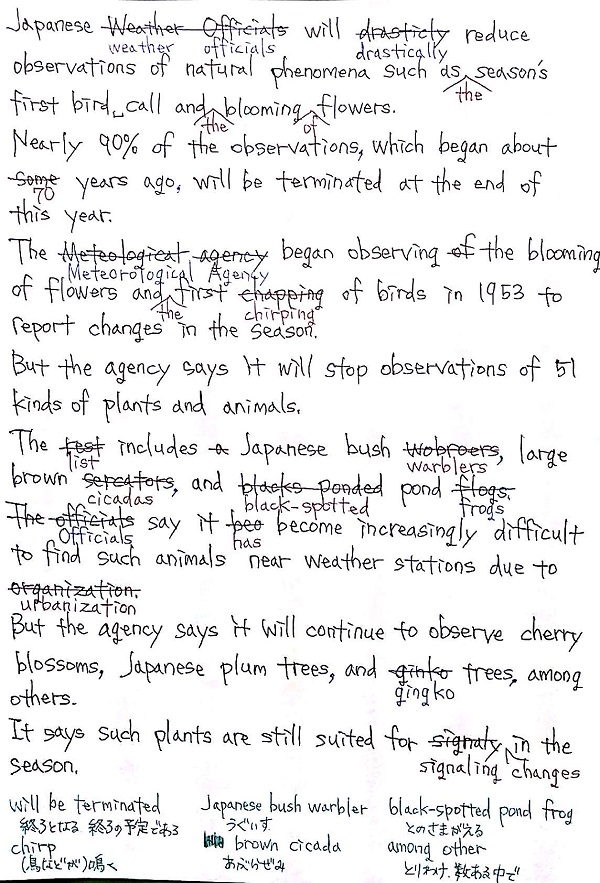 Japanese Weather Officials will drasticly reduce
weather officials drastically
observations of natural phenomena such as season's
the
first bird call and blooming flowers.
the of
Nearly 90% of the observations, which began about
some years ago, will be terminated at the end of
70
this year.
The Meteological agency began observing of the blooming
Meteorological Agency
of flowers and first chapping of birds in 1953 to
the chirping
report changes in the season.
But the agency says it will stop observations of 51
kinds of plants and animals.
The test includes a Japanese bush wobroers, large
list warblers
brown sercators, and blacks ponded pond flogs.
cicadas black-spotted frogs
The officials say it beo become increasingly difficult
Officials has
to find such animals near weather stations due to
organization.
urbanization
But the agency says it will continue to observe cherry
blossoms, Japanese plum trees, and ginko trees, among
gingko
others.
It says such plants are still suited for signaly in the
signaling changes
season.
will be terminated Japanese bush warbler black-spotted pond frog
終了となる 終了の予定である うぐいす とのさまがえる
chirp brown cicada among other
(鳥などが)鳴く あぶらぜみ とりわけ、数ある中で